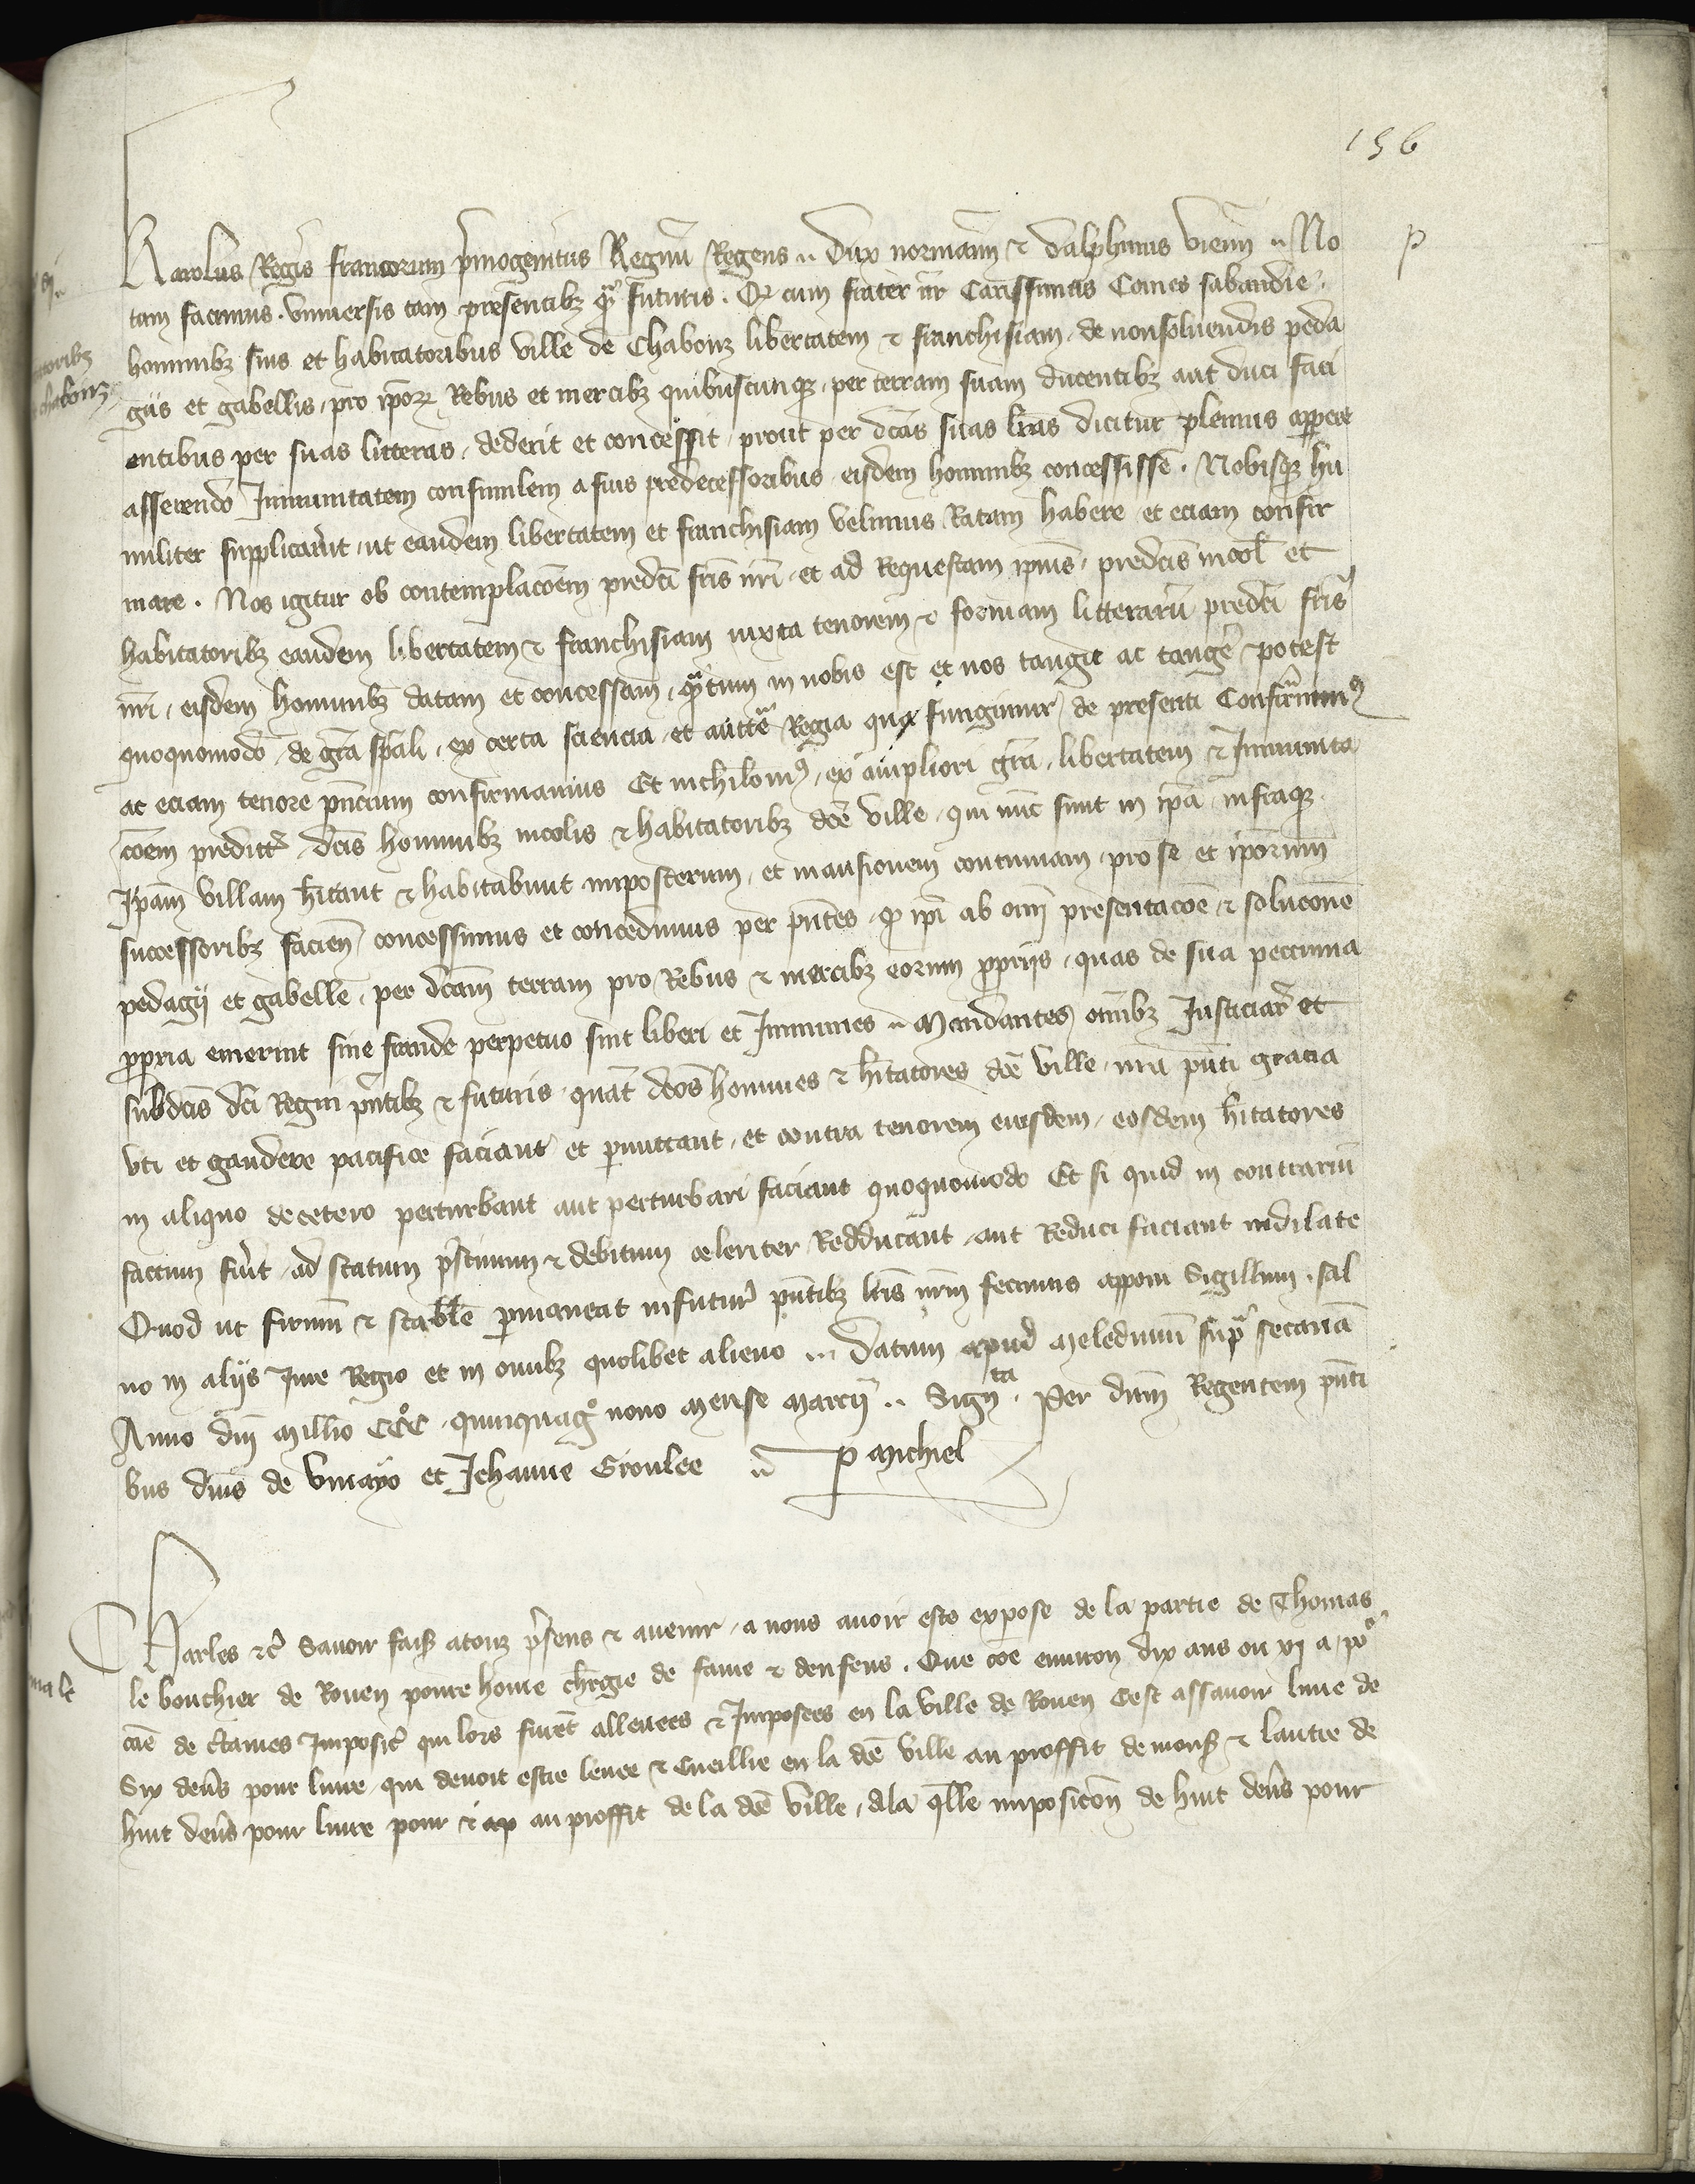 156
Karolus Regis francorum p̃mogenitus Regnũ Regens .. Dux normañn ⁊ dalphinus vieñn .. No
p
tam facimus . vniuersis tam presentibꝫ qᷓ futuris . Qꝫ cum frater nr̃ Carissimus Comes sabaudie
hominibꝫ suis et habitatoribus ville de Chabonz libertatem ⁊ franchisiam , de nonsoluendis peda
giis et gabellis , pro ip̃oꝝ Rebus et mercibꝫ quibuscunqꝫ , per terram suam ducentibꝫ aut duci faci
entibus per suas litteras , dederit et concessit , prout per dc̃as suas lr̃as dicitur plenius apparere
asserendo Jmmunitatem consimilem a suis predecessoribus eisdem hominibꝫ concessisse . Nobisqꝫ hu
militer supplicau̾it , ut eandem libertatem et franchisiam velimus Ratam habere et eciam confir
mare . Nos igitur ob contemplac̃oem predc̃i fr̃is nr̃i , et ad Requestam ip̃ius , predc̃is incol̃ et
habitatoribꝫ eandem libertatem ⁊ franchisiam iuxta tenorem ⁊ formam litterarũ predc̃i fr̃is
nr̃i , eisdem hominibꝫ datam et concessam , qᷓtum in nobis est et nos tangit ac tange᷒ potest
quoquomodo , de gr̃a sp̃ali , ex certa sciencia , et auctẽ Regia qua fungimur , de presenti Confirmamꝰ
ac eciam tenore pñcium confirmamus Et nichilomꝰ , ex ampliori gr̃a , libertatem ⁊ Jmmunita
c̃oem predict̾ , dc̃is hominibꝫ incolis ⁊ habitatoribꝫ dc̃e ville , qui nũc sunt in ip̃a , infraqꝫ
Jp̃am villam h̃itant ⁊ habitabunt imposterum , et mansionem continuam , pro se et ip̃orum
successoribꝫ facieñ , concessimus et concedimus per pñtes , qꝫ ip̃i ab om̃i presentac̃oe ⁊ soluc̃one
pedagij et gabelle , per dc̃am terram pro Rebus ⁊ mercibꝫ eorum ꝓprijs , quas de sua peccunia
ꝓpria emerint sine fraude perpetuo sint liberi et Jmmunes .. Mandantes om̃ibꝫ Justiciar̾ et
subdc̃is dc̃i Regni pñtibꝫ ⁊ futuris , quat̾ dc̃os homines ⁊ h̃itatores dc̃e ville , nr̃a pñti gracia
vti et gaudere pacifice faciant et ꝑmittant , et contra tenorem eiusdem , eosdem h̃itatores
in aliquo decetero perturbant aut perturbari faciant quoquomodo Et si quid in contrariũ
factum fu̾it , ad statum p̾stinum ⁊ debitum celeriter Redducant , aut Reduci faciant indilate
Quod ut firmũ ⁊ stabile ꝑmaneat infutur̾ pñtibꝫ lr̃is nr̃m fecimus apponi Sigillum . sal
uo in aliis Jure Regio et in om̃ibꝫ quolibet alieno ... Datum apud meledunũ supᷓ secanã
Anno dñj Mill̃io CCC̊ . quinquag̊ nono mense marcij .. Sigñta . Per dñm Regentem pñti
bus dñis de vinayo et Jehanne Groulee .. P Michiel
Charles ⁊c̾ Sauoir faisꝫ atouz p̾sens ⁊ auenir , a nous auoir este expose de la partie de Thomas
le bouchier de Rouen poure home ch̾gie de fame ⁊ denfens . Que c̃oe enuiron dix ans ou xi a , po᷒
cãe de c̾taines Jmposic̾ qui lors furẽt alleuees ⁊ Jmposees en la ville de Rouen Cest assauoir lune de
Six den̾s pour liure , qui deuoit estre leuee ⁊ Cueillie en la dc̃e ville au proffit de monsꝫ ⁊ lautre de
huit den̾s pour liure pour ⁊ au proffit de la dc̃e ville , Ala qᷓlle imposic̃on de huit den̾s pour